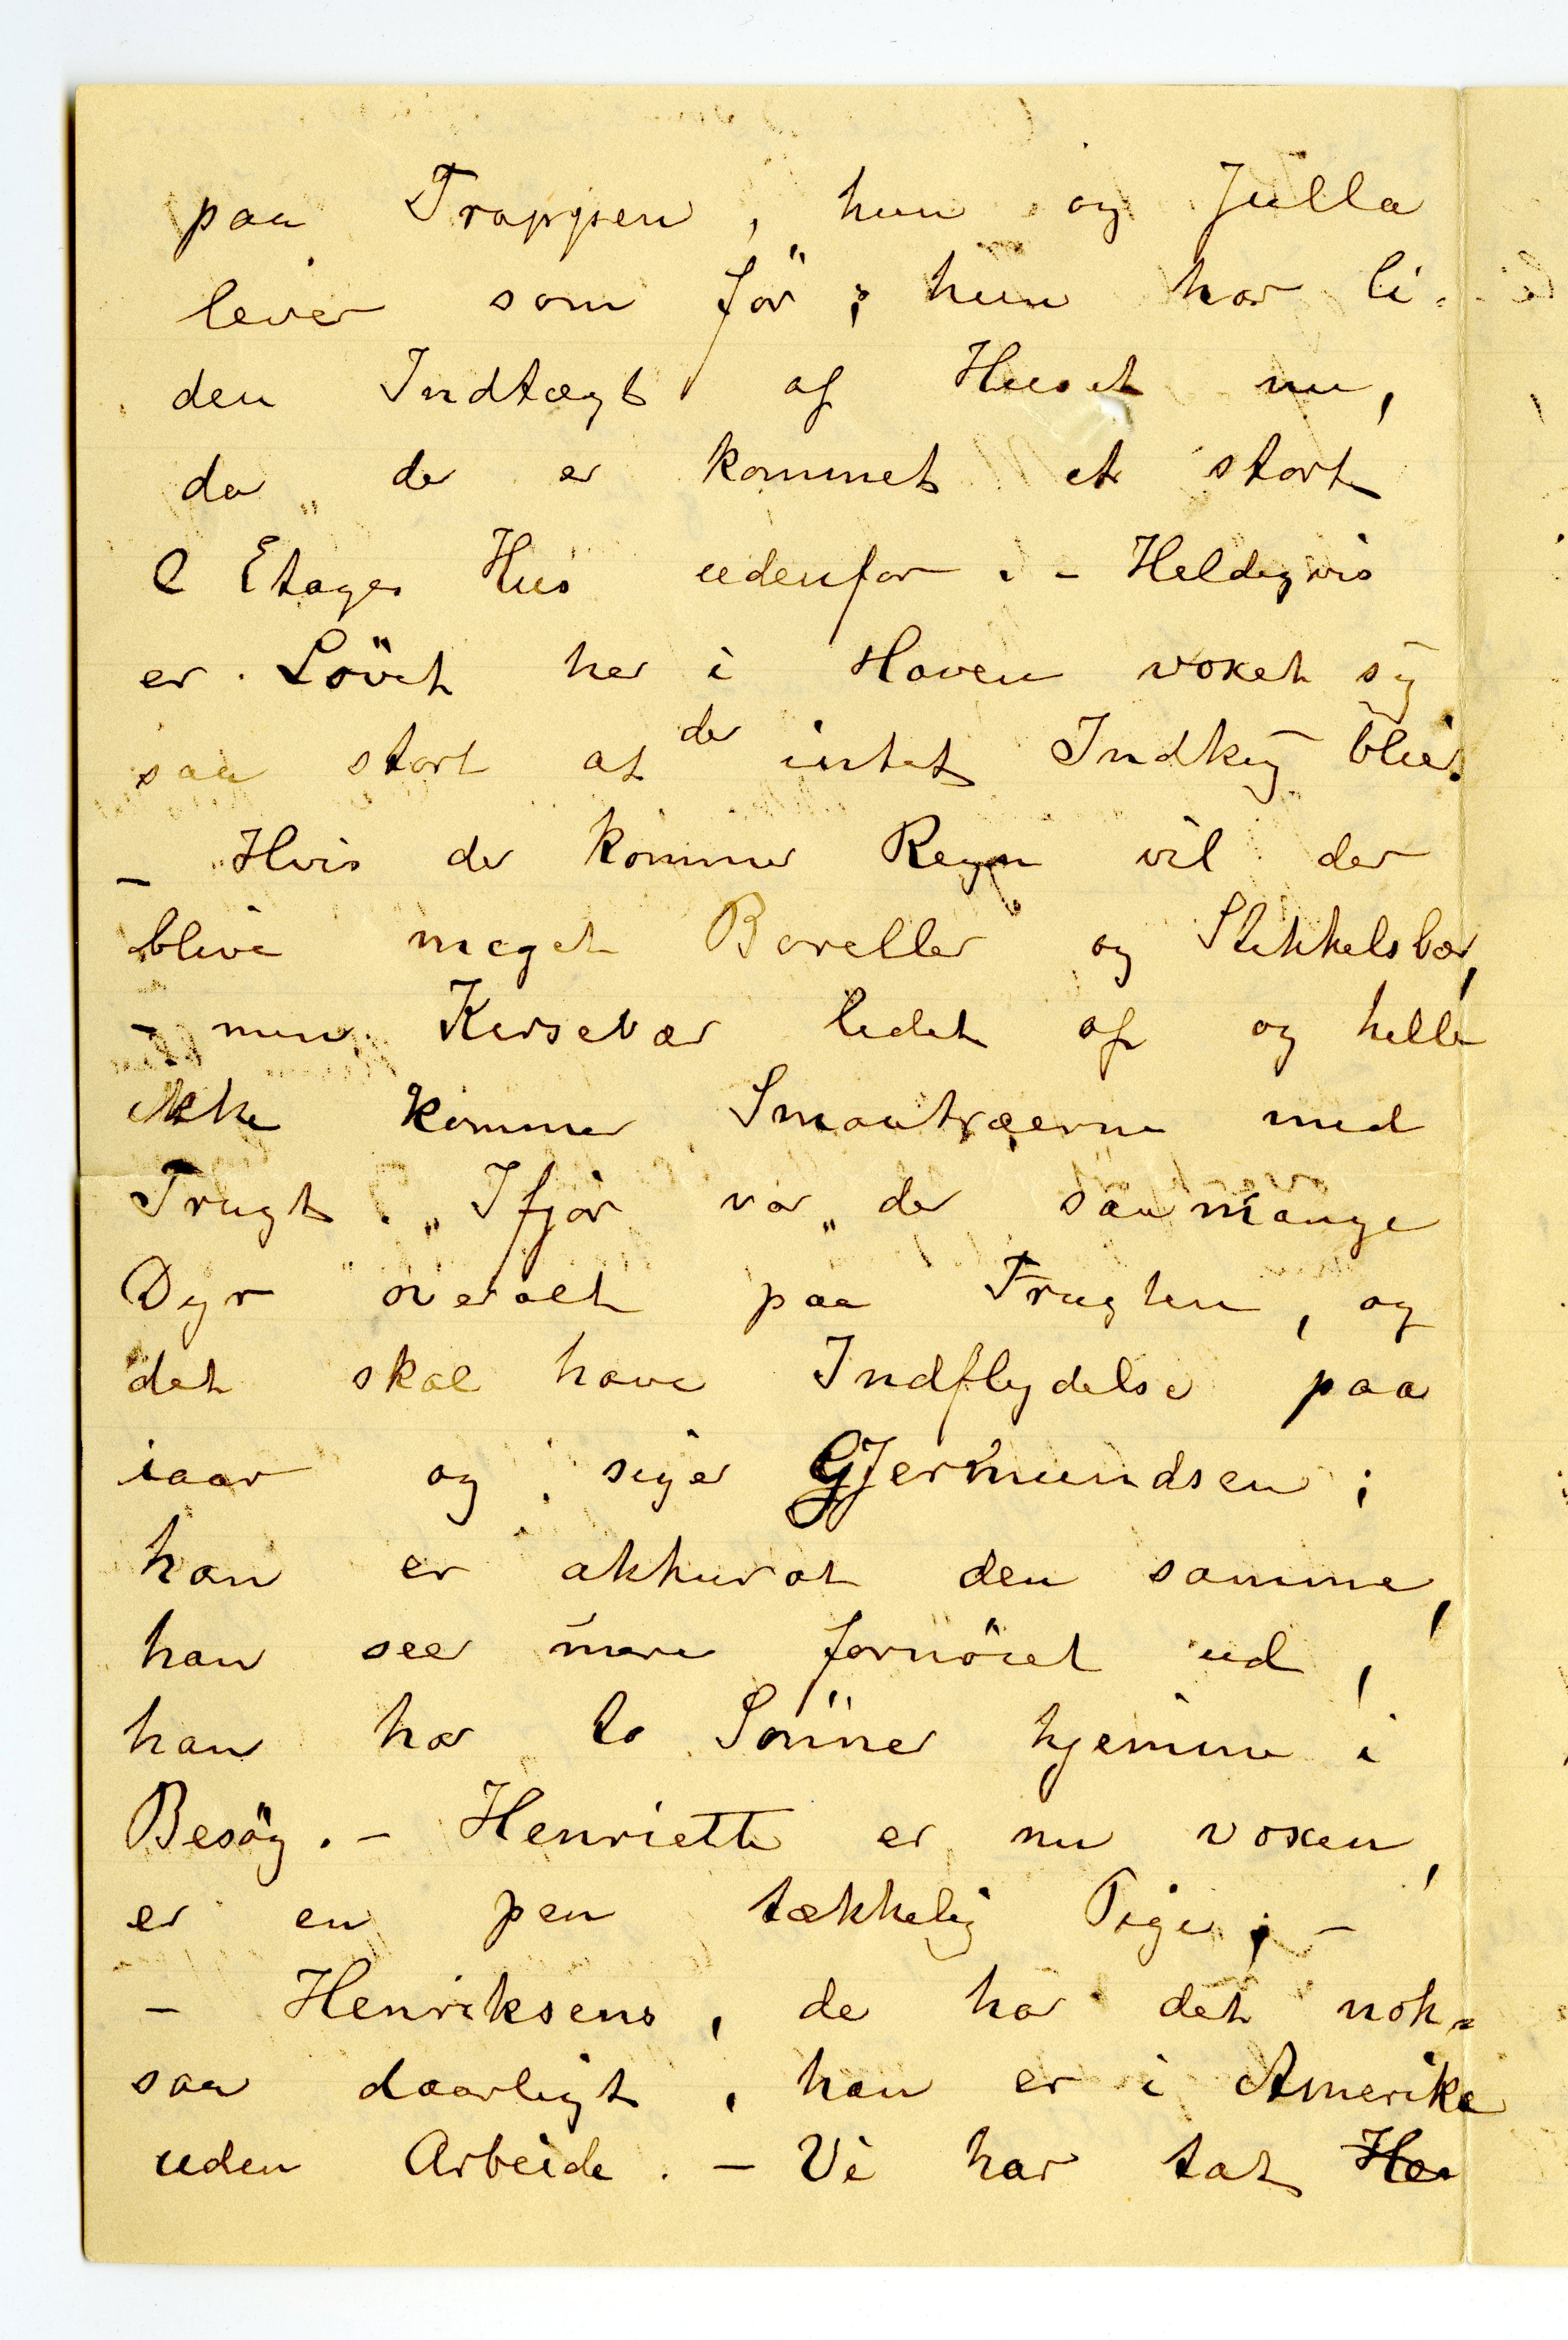 paa Trappen, hun og Julla
lever som för; hun har li-
den Indtægt af Huset nu,
da der er kommet et stort
2 Etages Hus udenfor. - Heldigvis
er Lövet her i Haven voxet sig
saa stort at der intet Indkig blir.
- Hvis der kommer Regn vil der
blive meget Moreller og Stikkelsbær,
- men Kirsebær lidet af og heller
ikke kommer Smaatræerne med
Frugt. Ifjor var der saa mange
Dyr overalt paa Frugten, og
det skal have Indflydelse paa
iaar og, siger Gjermundsen;
han er akkurat den samme,
han seer mere fornöiet ud,
han har to Sönner hjemme i
Besög. - Henriette er nu voxen,
er en pen tækkelig Pige; -
- Henriksens, de har det nok-
saa daarligt, han er i Amerika
uden Arbeide. - Vi har tat